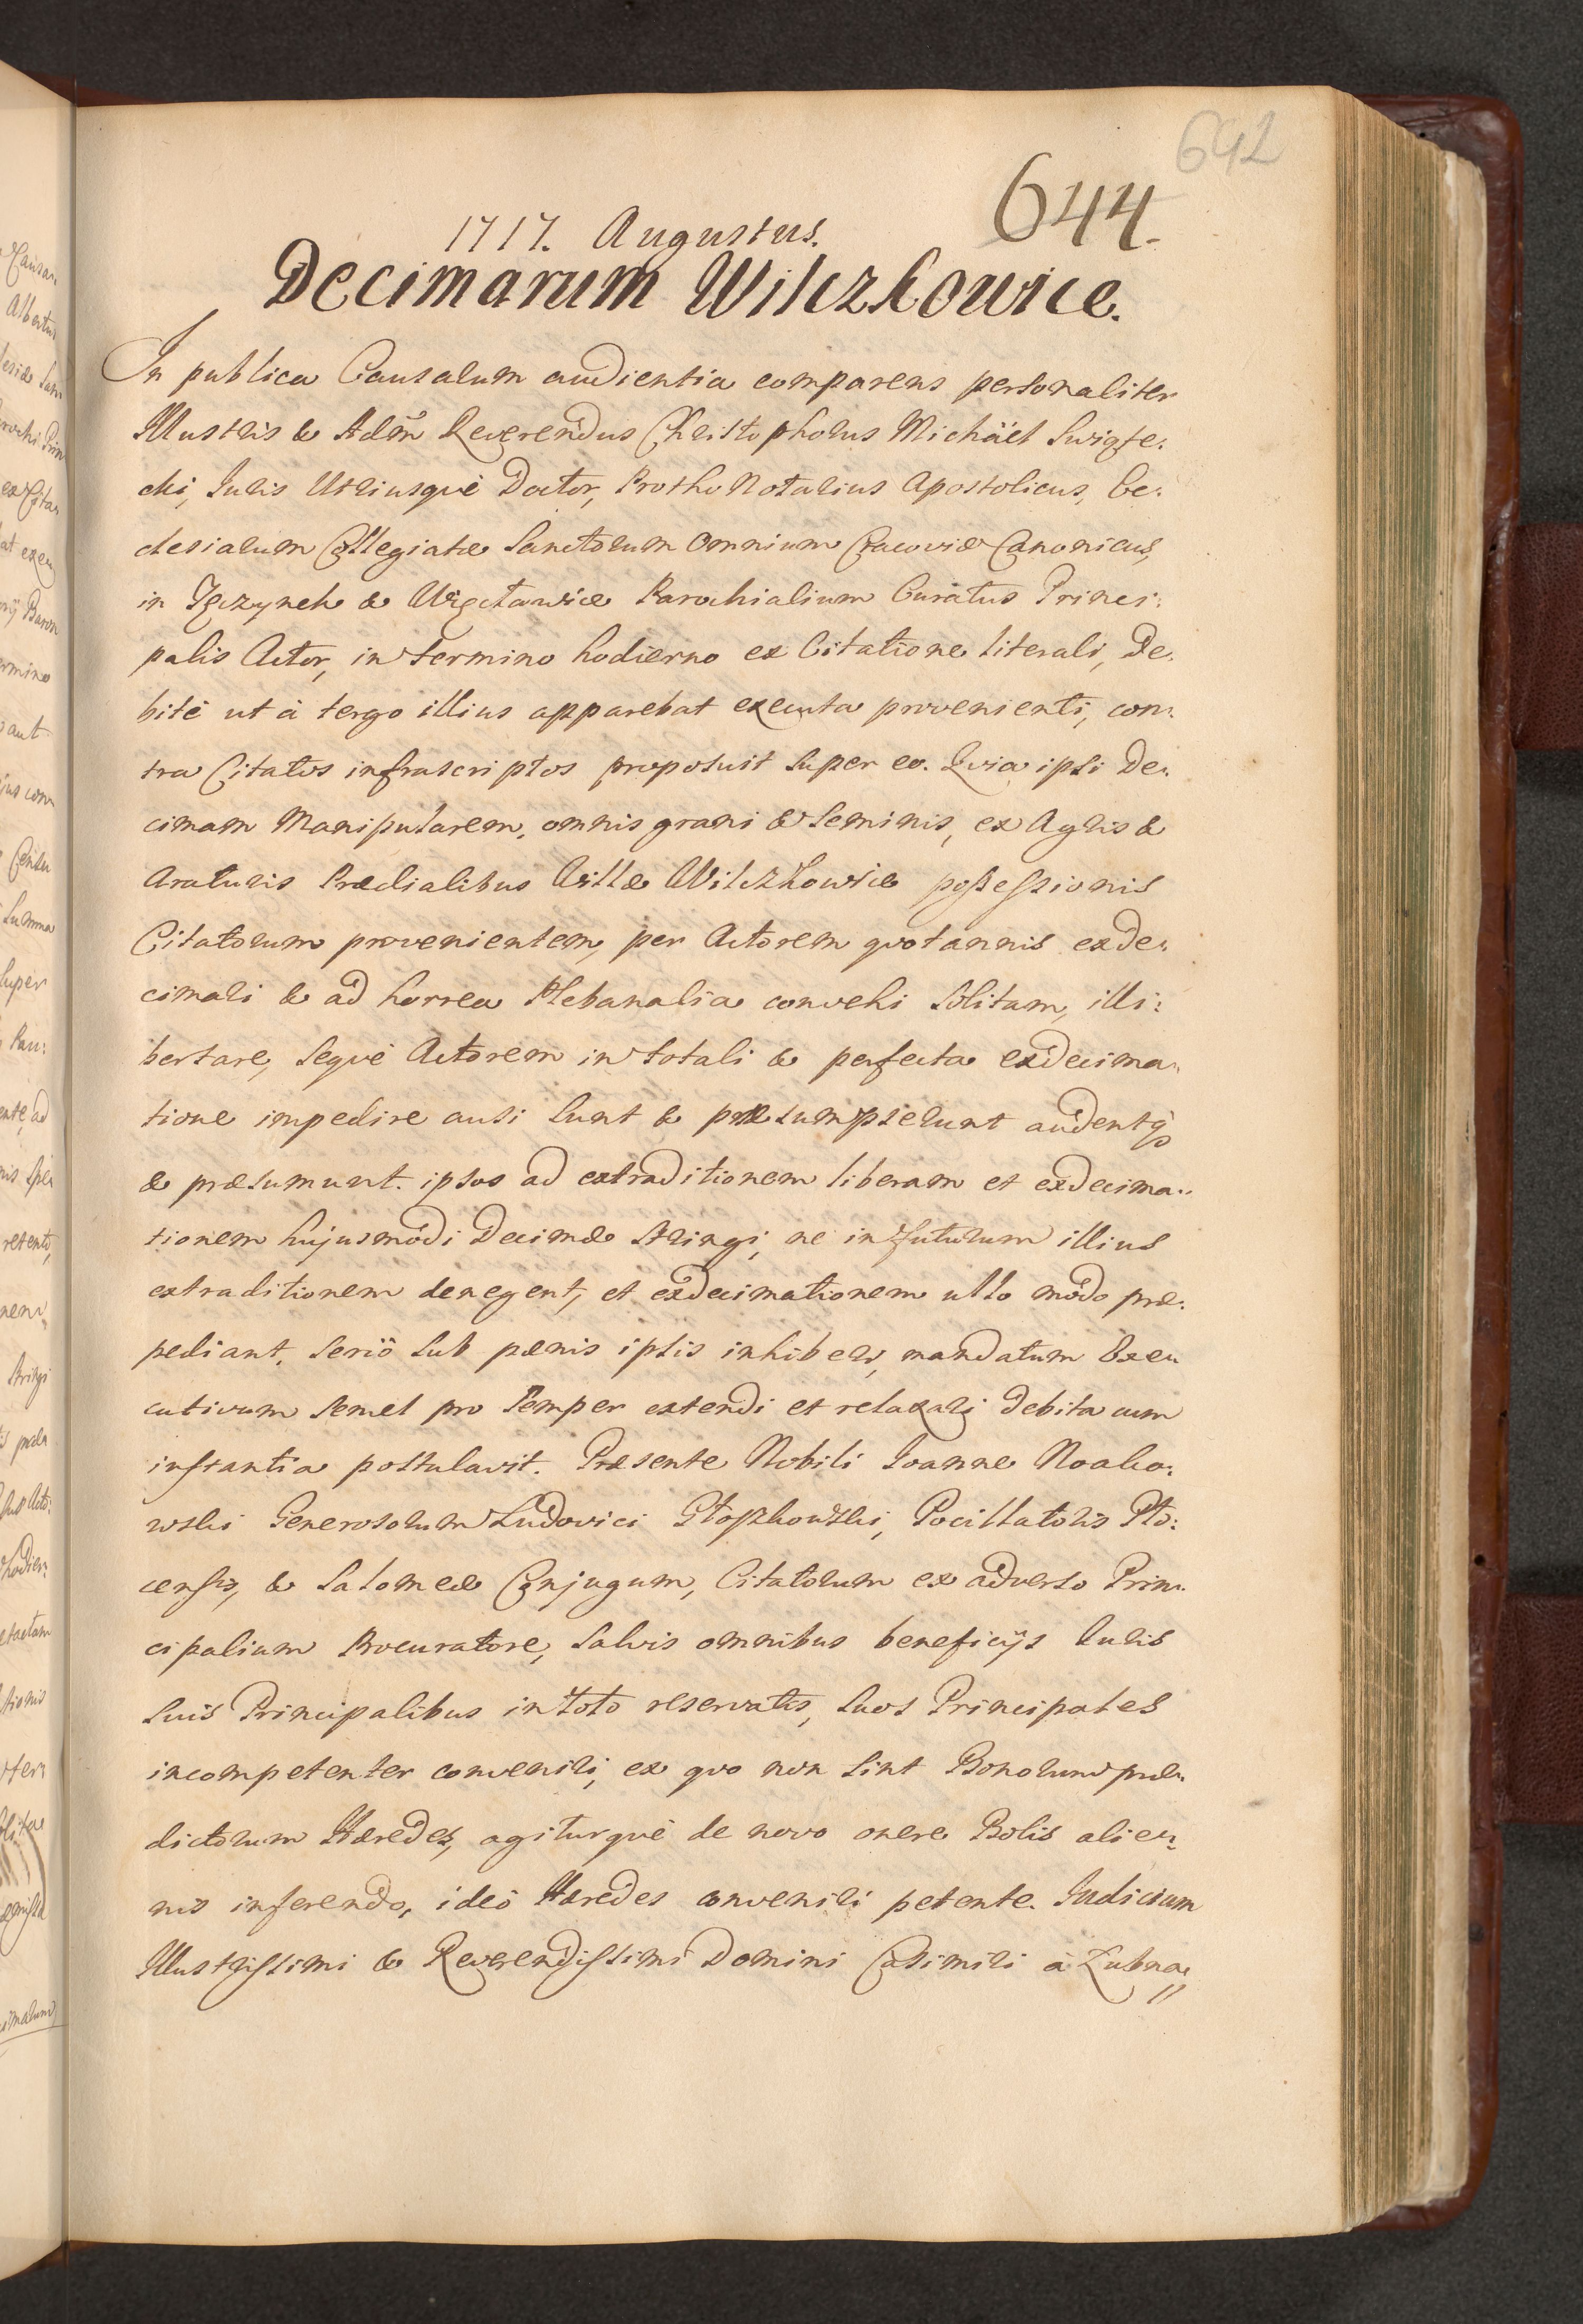 642
644.
1717. Augustus.
Decimarum Wilczkowice.
In publica Causarum audientia comparens personaliter
Illustris & Adm̃ Reverendus Christophorus Michäel Swięte:
cki, Iuris Utriusquè Doctor, Protho Notarius Apostolicus, Ec:
clesiarum Collegiatæ Sanctorum Omnium Cracoviæ Canonicus,
in Tęczynek & Więctawice Parochialium Curatus Princi:
palis Actor, in termino hodierno ex Citatione literali, De:
bitè ut à tergo illius apparebat executa provenienti, con:
tra Citatos infrascriptos proposuit super eo. Qvia ipsi De:
cimam Manipularem, omnis grani & Seminis, ex Agris &
Araturis Prædialibus Villæ Wilczkowice possessionis
Citatorum provenientem, per Actorem qvotannis exde:
cimari & ad horrea Plebanalia convehi solitam, illi:
bertare, seqvè Actorem in totali & perfecta exdecima:
tione impedire ausi sunt & præsumpserunt audentq;
& præsumunt. ipsos ad extraditionem liberam et exdecima:
tionem hujusmodi Decimæ stringi, ne in futurum illius
extraditionem denegent, et exdecimationem ullo modo præ:
pediant, seriò sub pænis ipsis inhiberi, mandatum Exe:
cutivum semel pro semper extendi et relaxari debita cum
instantia postulavit. Præsente Nobili Ioanne Noako:
wski Generosorum Ludovici Głoszkowski, Pocillatoris Plo:
censis, & Salomeæ Conjugum, Citatorum ex adverso Prin:
cipalium Procuratore, salvis omnibus beneficijs Iuris
suis Principalibus in toto reservatis, suos Principales
incompetenter conveniri, ex qvo non sint Bonorum præ:
dictorum Hæredes, agiturqvè de novo onere Bonis alie:
nis inferendo, ideò Hæredes conveniri petente. Iudicium
Illustrissimi & Reverendissimi Domini Casimiri à Łubna